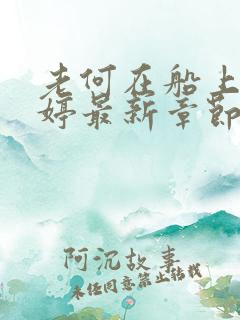 老何在船上
婷最新章节
阿沉故事
未经同意禁止转载